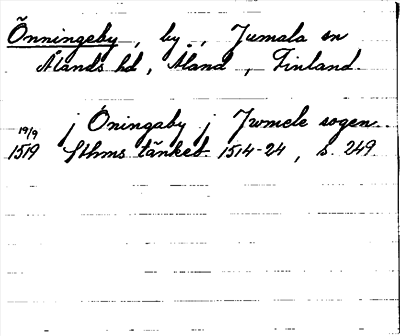 Önningeby, by, Jumala sn
Ålands hd, Åland, Finland.
19/9 j Öningaby j Jwmele sogen..
1519 Sthms tänkeb. 1514-24, s. 249.